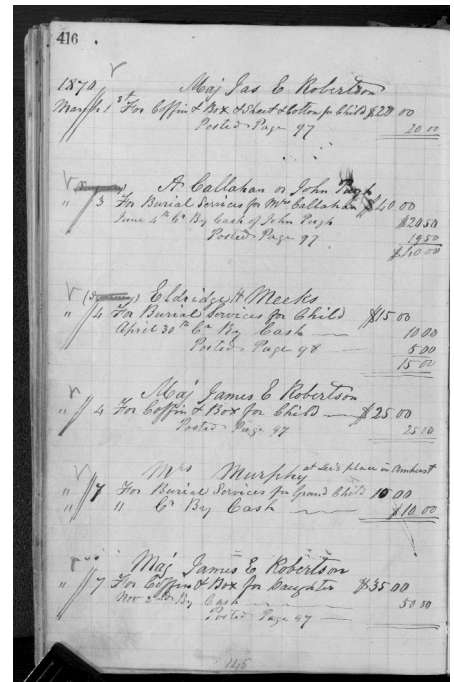 416
1870 Maj Jas E Robertson
March 1st For Coffin & Box & Sheet & Cotton for Child $20 00
Posted Page 97 20 00
A Callahan or John Pugh
" 3 For Burial Services for Mrs Callahan $40.00
June 4th Cr By Cash of John Pugh $20 50
Posted Page 97 19 50
$40.00
Eldridge H Meeks
" 4 For Burial Services for Child $15 00
April 30th Cr By Cash 10 00
Posted Page 98 5 00
15 00
Maj James E Robertson
" 4 For Coffin & Box for Child $25 00
Posted Page 97 25 00
Mrs Murphy at place in Amherst
" 7 For Burial Services for Grand Child 10 00
" " " Cr By Cash $10.00
Maj James E Robertson
" 7 For Coffin & Box for Daughter $35 00
Nov 2nd By Cash 50 00
Posted Page 97
145